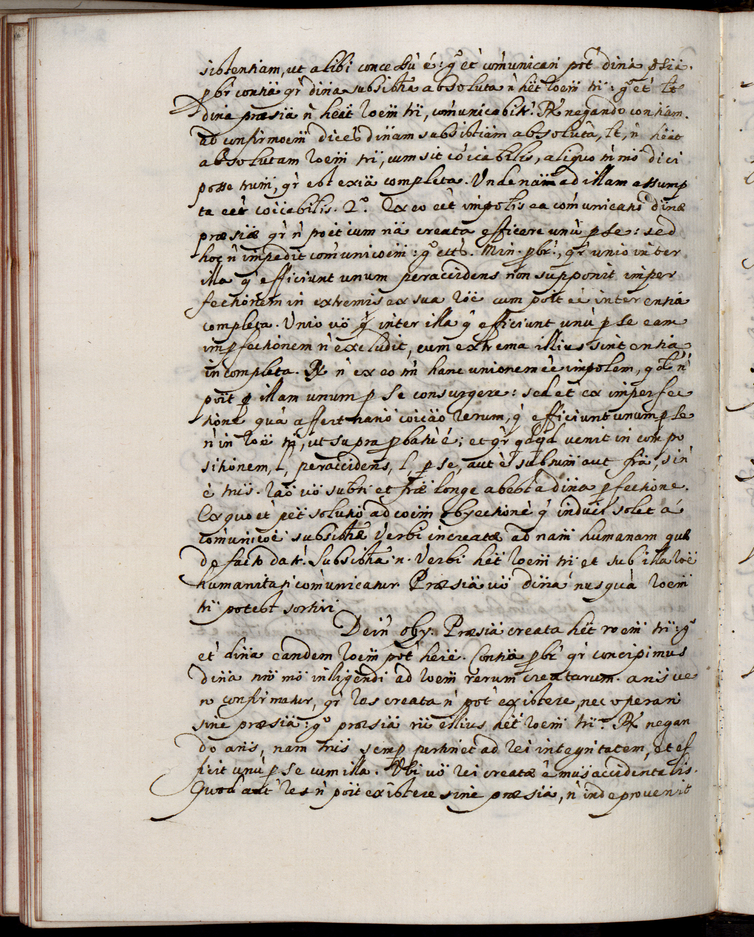 sistentiam, ut alibi concessũ ẽ: gº et cõmunicari pot̃ diña psiã.
pbr̃ contiã qr̃ diña subsistiã absoluta ñ hẽt roem̃ tr̃i: gº et
diña præsiã ñ heãt roem̃ tr̃i, com̃unicabit. R. negando contiam.
ad confirmoem̃ dices diñam subsistiam absolutã, ñ heẽt
absolutam roem̃ tr̃i, cum sit coĩcabilis, aliquo tñ mõ dici
posse trum̃, qr̃ est exiã completa. Unde nam̃ ad illam assump
ta coĩcabilis. 2º. Ex eo cẽt impolis ea com̃unicatio diñæ
præsiæ qr̃ ñ poẽt cum nã creata efficere unũ p se: sed
hoc ñ impedit com̃unicoem̃: gº Min. pbr̃, qr̃ unio inter
illa q̃ efficiunt unum peraccidens non supponit imper
fectionem in extremis ex sua roẽ cum posit eẽ inter entia
completa. Unio võ q̃ inter illa q̃ efficiunt unũ p se eam
imperfectionem ñ excludit, cum extrema illius sint entia
incompleta. R. ñ ex eo tñ hanc unionem eẽ impolem, qd̃ ñ
posit p illam unum p se consurgere: sed et ex imperfec
tione quã affert ratio rerum, q̃ efficiunt unum p se
ñ in roẽ tr̃i, ut supra pbatũ ẽ; et qr̃ qdqd venit in compo
sitionem, l, peraccidens, l, p se, aut ẽ subtum aut frã, sin
ẽ tr̃is. rao vo subti et fræ longe abest a diña pfectione.
Ex quo et pet̃ solutio ad coem̃ obiectionẽ q̃ induci solet a
com̃unicoẽ subsistiæ Verbi increatæ ad nam̃ humanam quæ
de facto datr̃. Subsistiã n. Verbi hẽt roem̃ tr̃i et sub illa roẽ
humanitati com̃unicatur. Præsiã vo diña nusquã roem̃
tr̃i potest sortiri.
Dein obj. Præsiã creata hẽt roem̃ tr̃i: gº
et diña eandem roem̃ pot̃ heẽ. Contiã pbr̃ qr̃ concipimus
diña nrõ mõ intligendi ad roem̃ rerum creatarum. anis ve
ro confirmatur, qr̃ res creata ñ pot̃ existere, nec operari
sine præsiã: gº præsiã illius hẽt roem̃ tr̃i. R. negan
do anis, nam tr̃is semp pertinet ad rei integritatem, et ef
ficit unũ p se cum illa. Ubi vo rei creatæ ẽ accidentalis.
Quod aut res ñ posit existere sine præsiã, ñ inde provenit